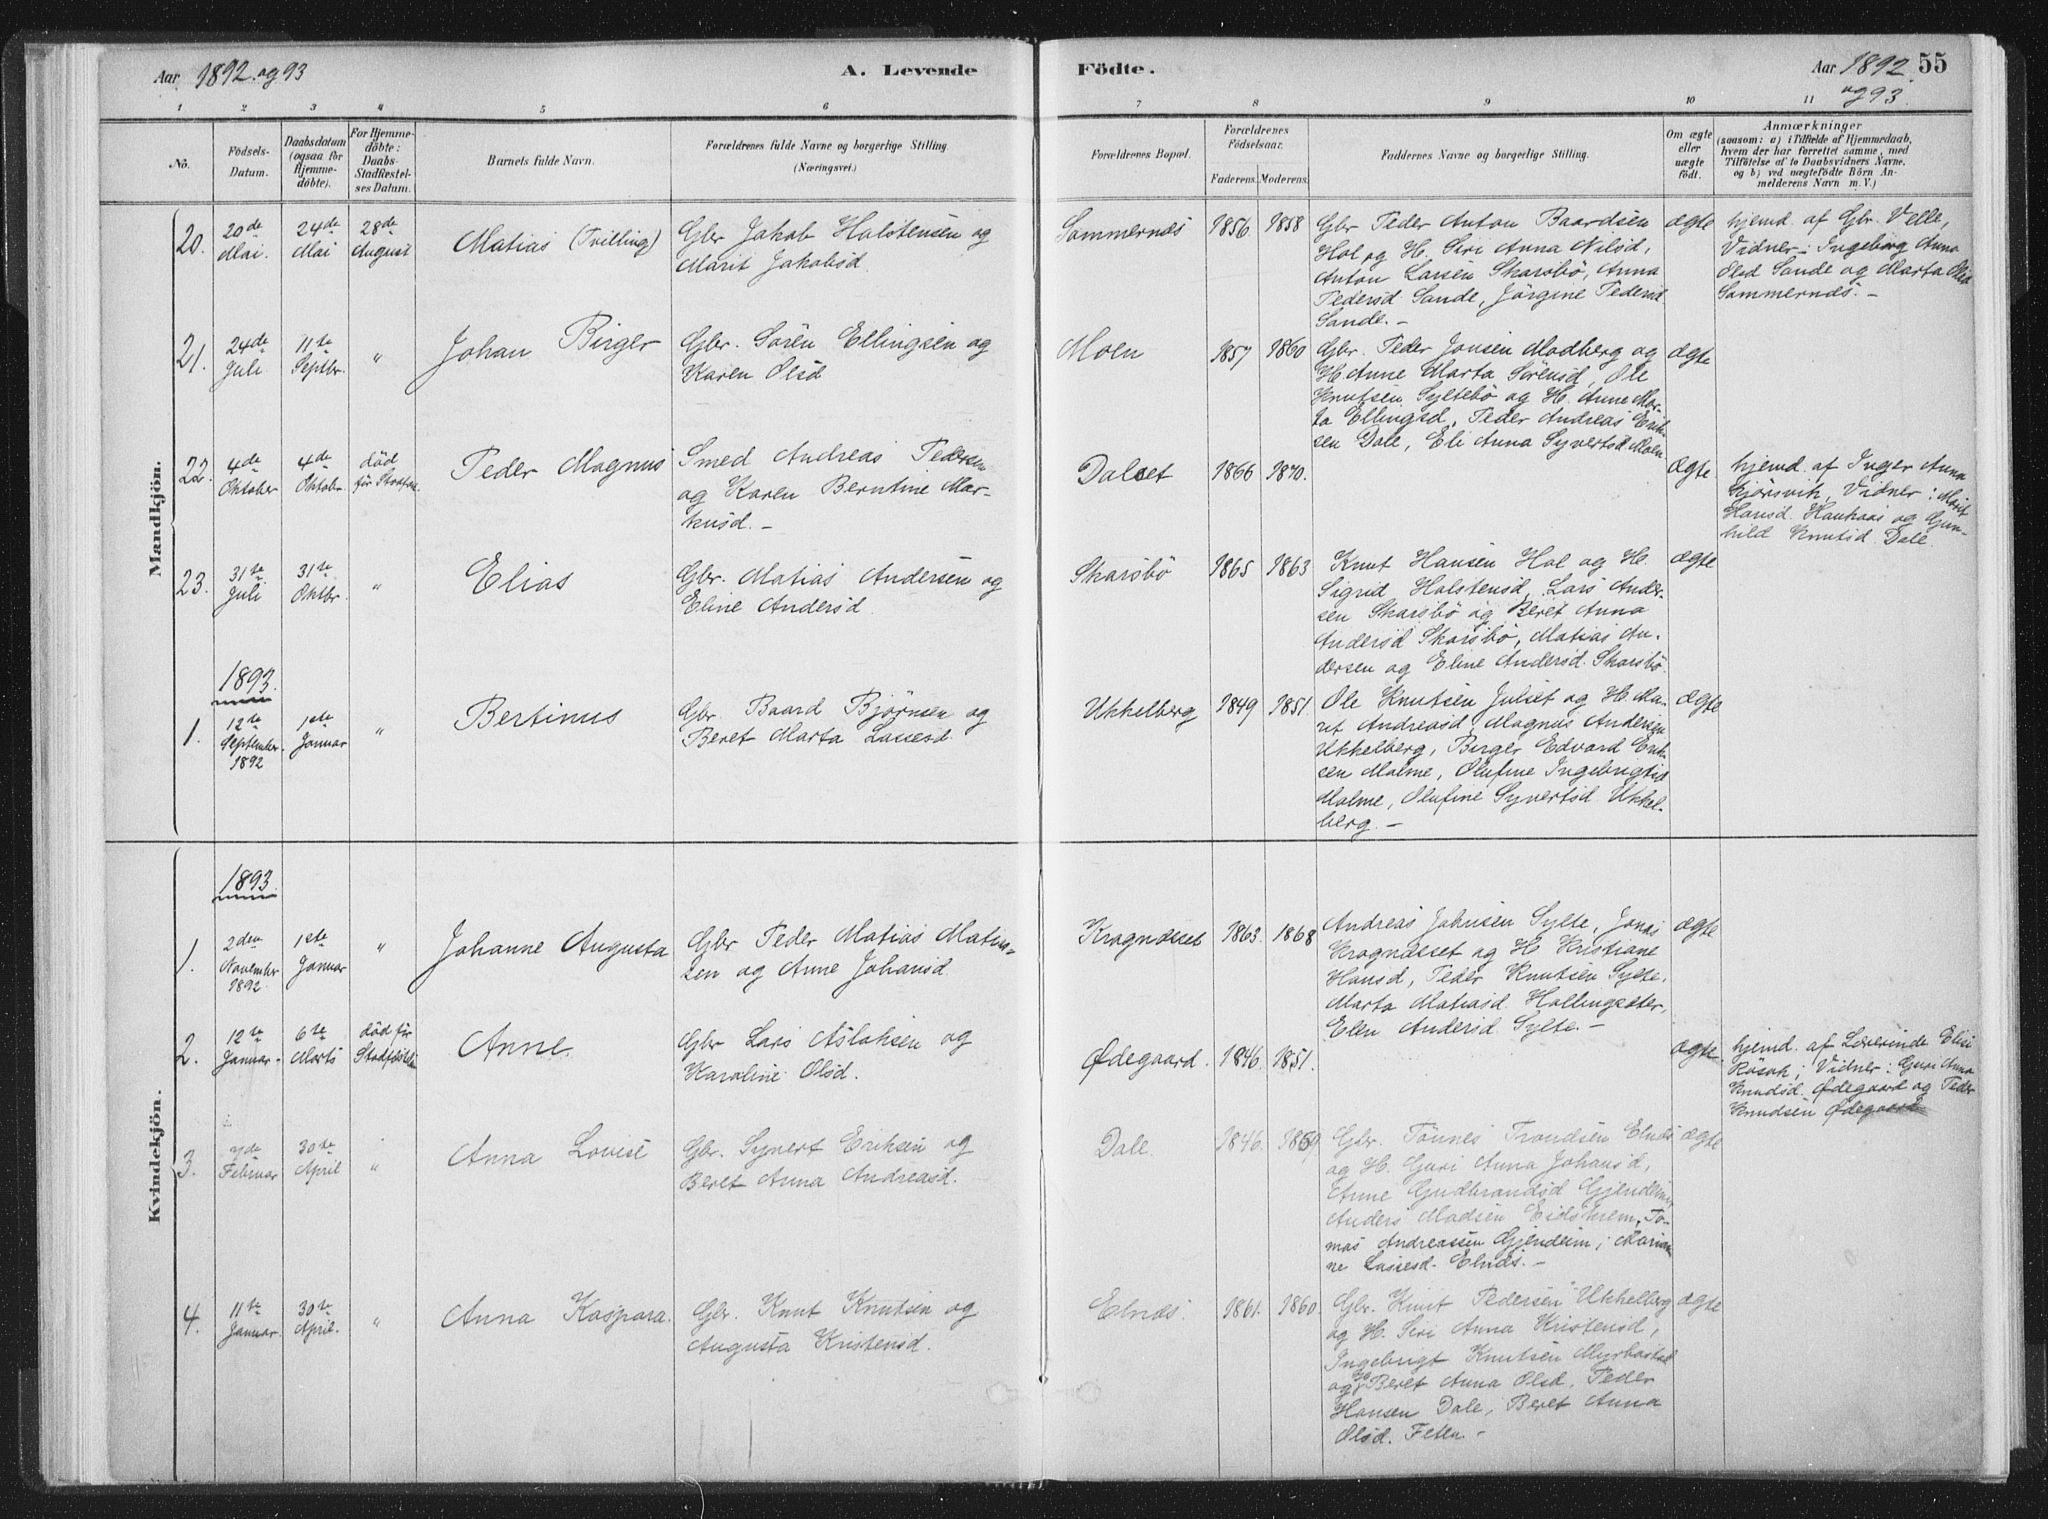 Aar 1892 og 93
A. Levende
Födte.
Aar 1892 og 93.
55
1 2 3 4 5 6 7 8 9 10 11
No.
Födsels-Datum.
Daabsdatum (ogsaa for Hjemmedöbte).
For Hjemmedöbte: Daabs-Stadfæstelses Datum.
Barnets fulde Navn.
Forældrenes fulde Navne og borgerlige Stilling. (Næringsvei.)
Forældrenes Bopæl.
Forældrenes Födselsaar.
Faderens. Moderens.
Faddernes Navne og borgerlige Stilling.
Om ægte eller uægte födt.
Anmærkninger
(saasom: a) i Tilfælde af Hjemmedaab,
hvem der har forrettet samme, med
Tilföielse af to Daabsvidners Navne,
og b) ved uægtefödte Börn Anmelderens Navn m. V.)
Mandkjön.
20.
20de Mai.
24de Mai
28de August
Matias (Tvilling)
Gbr Jakob Halstensen og
Marit Jakobsd.
Sommernæs
1856. 1858
Gbr Peder Anton Baardsen
Hol og H. Siri Anna Nilsd,
Anton Larsen Skarsbö, Anna
Pedersd Sande, Jörgine Pedersd
Sande. -
ægte
hjemd. af Gbr. Velle,
Vidner: Ingeborg Anna
Olsd Sande og Marta Olsd
Sommernæs. -
21.
24de Juli
11te Septbr.
"
Johan Birger
Gbr. Sören Ellingsen og
Karen Olsd
Moen
1857 1860
Gbr. Peder Jonsen Modberg og
H. Anne Marta Sörensd, Ole
Knutsen Syltebö og H. Anne Mar-
ta Ellingsd, Peder Andreas Erik-
sen Dale, Eli Anna Syvertsd Moen
ægte
22.
4de Oktober
4de Oktobr.
död för Stadfæst.
Peder Magnus
Smed Andreas Pedersen
og Karen Berntine Mar-
kusd. -
Dalset
1866 1870.
ægte
hjemd. af Inger Anna
Gjörsvik, Vidner: Marit
Hansd. Haukaas og Gun-
hild Knutsd Dale.
23.
31te Juli
31te Oktbr.
"
Elias
Gbr. Matias Andersen og
Eline Andersd.
Skarsbö
1865 1863
Knut Hansen Hol og H.
Sigrid Halstensd, Lars Ander-
sen Skarsbö og Beret Anna
Andersd Skarsbö, Matias An-
dersen og Eline Andersd. Skarsbö
ægte
1893.
1.
12te September. 1892
1ste Januar
"
Bertinus
Gbr Baard Björnsen og
Beret Marta Lassesd.
Ukkelberg
1849 1851.
Ole Knutsen Julset og H. Ma-
rit Andreasd, Magnus Andersen
Ukkelberg, Birger Edvard Erik-
sen Malme, Olufine Ingebrigtsd
Malme, Olufine Syvertsd. Ukkel-
berg. -
ægte
Kvindekjön.
1893.
1.
2den November 1892.
1ste Januar
"
Johanne Augusta
Gbr Peder Matias Matias-
sen og Anne Johansd.
Kragnæsset
1863. 1868
Andreas Johnsen Sylte, Jonas
Kragnæsset og H Kristiane
Hansd, Peder Knutsen Sylte,
Marta Matiasd. Hollingsæter,
Elen Andersd. Sylte. -
ægte
2.
12te Januar.
6te Marts
död för Stadfæstelse
Anne.
Gbr Lars Aslaksen og
Karoline Olsd.
Ødegaard.
1846. 1851.
ægte
hjemd. af Lærerinde Elise
Rösok; Vidner: Guri Anna
Knudsd. Ødegaard og Peder
Knudsen Ødegaard
3.
7de Februar
30te April
"
Anna Lovise
Gbr. Syvert Eriksen og
Beret Anna Andreasd.
Dale.
1846. 1859
Gbr. Tönnes Trondsen Elnæs
og H. Guri Anna Johansd,
Anne Gudbrandsd Gjendeim,
Anders Madsen Eidshiem, To-
mas Andreassen Gjendeim, Marian-
ne Lassesd. Elnæs. -
ægte
4.
11te Januar.
30te April.
"
Anna Kaspara.
Gbr. Knut Knutsen og
Augusta Kristensd.
Elnæs.
1861. 1860.
Gbr. Knut Pedersen Ukkelberg
og H. Siri Anna Kristensd,
Ingebrigt Knutsen Myrbostad
og H. Beret Anna Olsd, Peder
Hansen Dale, Beret Anna
Olsd. Feten. -
ægte